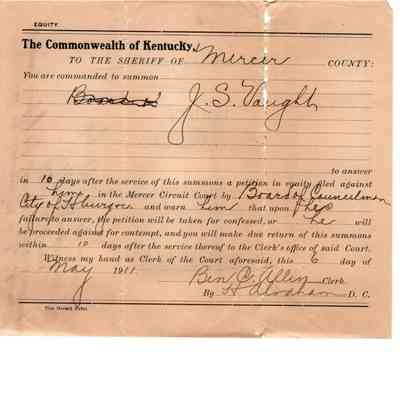 EQUITY.
The Commonwealth of Kentucky,
TO THE SHERIFF OF Mercer COUNTY:
You are commanded to summon
J. S. Vaught
to answer
in 10 days after the service of this summons a petition in equity filed against
him in the Mercer Circuit Court by Board of Councilmen
City of Hburg and warn him that upon his
failure to answer, the petition will be taken for confessed, or he will
be proceeded against for contempt, and you will make due return of this summons
within 10 days after the service thereof to the Clerk's office of said Court.
Witness my hand as Clerk of the Court aforesaid, this 6 day of
May 1911. Ben C. Allin Clerk.
By Abraham D. C.